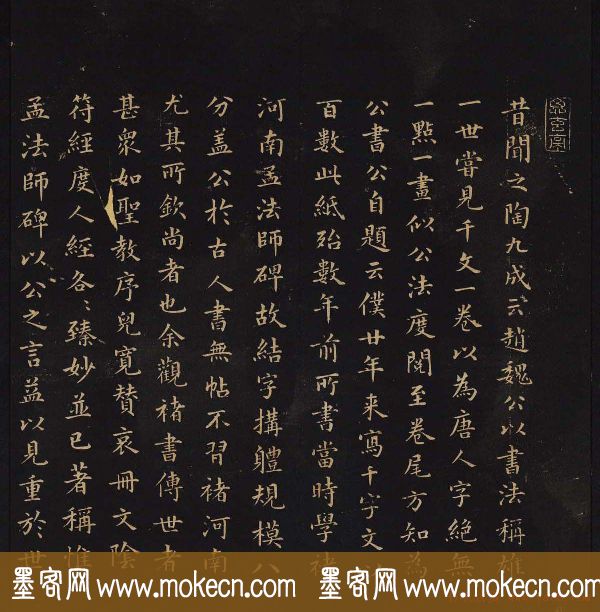 昔聞之陶九成云趙魏公以書法稱雄
一世嘗見千文一卷以為唐人字絕無
一點一畫似公法度閱至卷尾方知為
公書公自題云僕廿年来寫千字文以
百數此紙殆數年前所書當時學褚
河南孟法師碑故結字搆軆規模八
分盖公於古人書無帖不習褚河南
尤其所欽尚者也余觀褚書傳世者
甚眾如聖教序兒寛賛哀冊文陰
符經度人經各〻臻妙並已著稱惟
孟法師碑以公之言益以見重於世
墨客网 www.mokecn.com 墨客网 www.mokecn.com